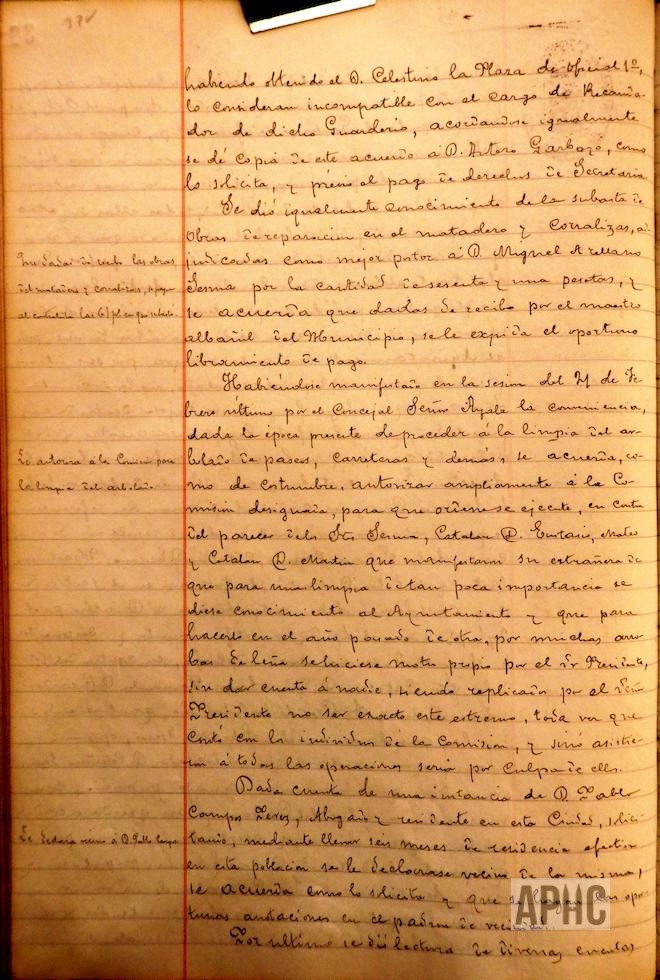 37v
habiendo obtenido el D. Celestino la Plaza de oficial 1º,
lo consideran incompatible con el cargo de Recauda-
dor de dicho Guarderio, acordandose igualmente
se dé copia de este acuerdo á D. Arturo Garbayo, como
lo solicita, y prévio el pago de derechos de Secretaria
Se dió igualmente conocimiento de la subasta de
obras de reparacion en el matadero y corralizas, ad-
judicadas como mejor postor á D. Miguel Arellano
Sesma por la cantidad de sesenta y una pesetas, y
se acuerda que dadas de recibo por el maestro
albañil del Municipio, se le expida el oportuno
libramiento de pago.
Habiéndose manifestado en la sesion del 21 de Fe-
brero último por el Concejal Señor Ayala la conveniencia,
dada la época presente de proceder á la limpia del ar-
bolado de paseos, carreteras y demás, se acuerda, co-
mo de costumbre, autorizar ampliamente á la Co-
mision designada, para que ordene se ejecute, en contra
del parecer de los Sres Sesma, Catalan D. Eustasio, Mateo
y Catalan D. Martin que manifestaron su estrañeza de
que para una limpia de tan poca importancia se
diese conocimiento al Ayuntamiento y que para
hacerlo en el año pasado de otra, por muchas arro-
bas de leña se hiciese motu propio por el Sr Presidente,
sin dar cuenta á nadie, siendo replicado por el Señor
Presidente no ser exacto este estremo, toda vez que
contó con los individuos de la Comision, y sinó asistie-
ron á todas las operaciones seria por culpa de ellos.
Dada cuenta de una instancia de D. Pablo
Campos Perez, Abogado y residente en esta Ciudad, solici-
tando, mediante llevar seis meses de residencia efectiva
en esta poblacion se le declarase vecino de la misma,
se acuerda como lo solicita y que se hagan las opor-
tunas anotaciones en el padron de vecindad.
Por ultimo se dió lectura de diversas cuentas
dadas de recibo las obras
del matadero y corralizas, se pague
al contratista las 61 pts en que subastó.
Se autoriza á la Comision para
la limpia del arbolado.
Se declara vecino á D. Pablo Campos
APHC